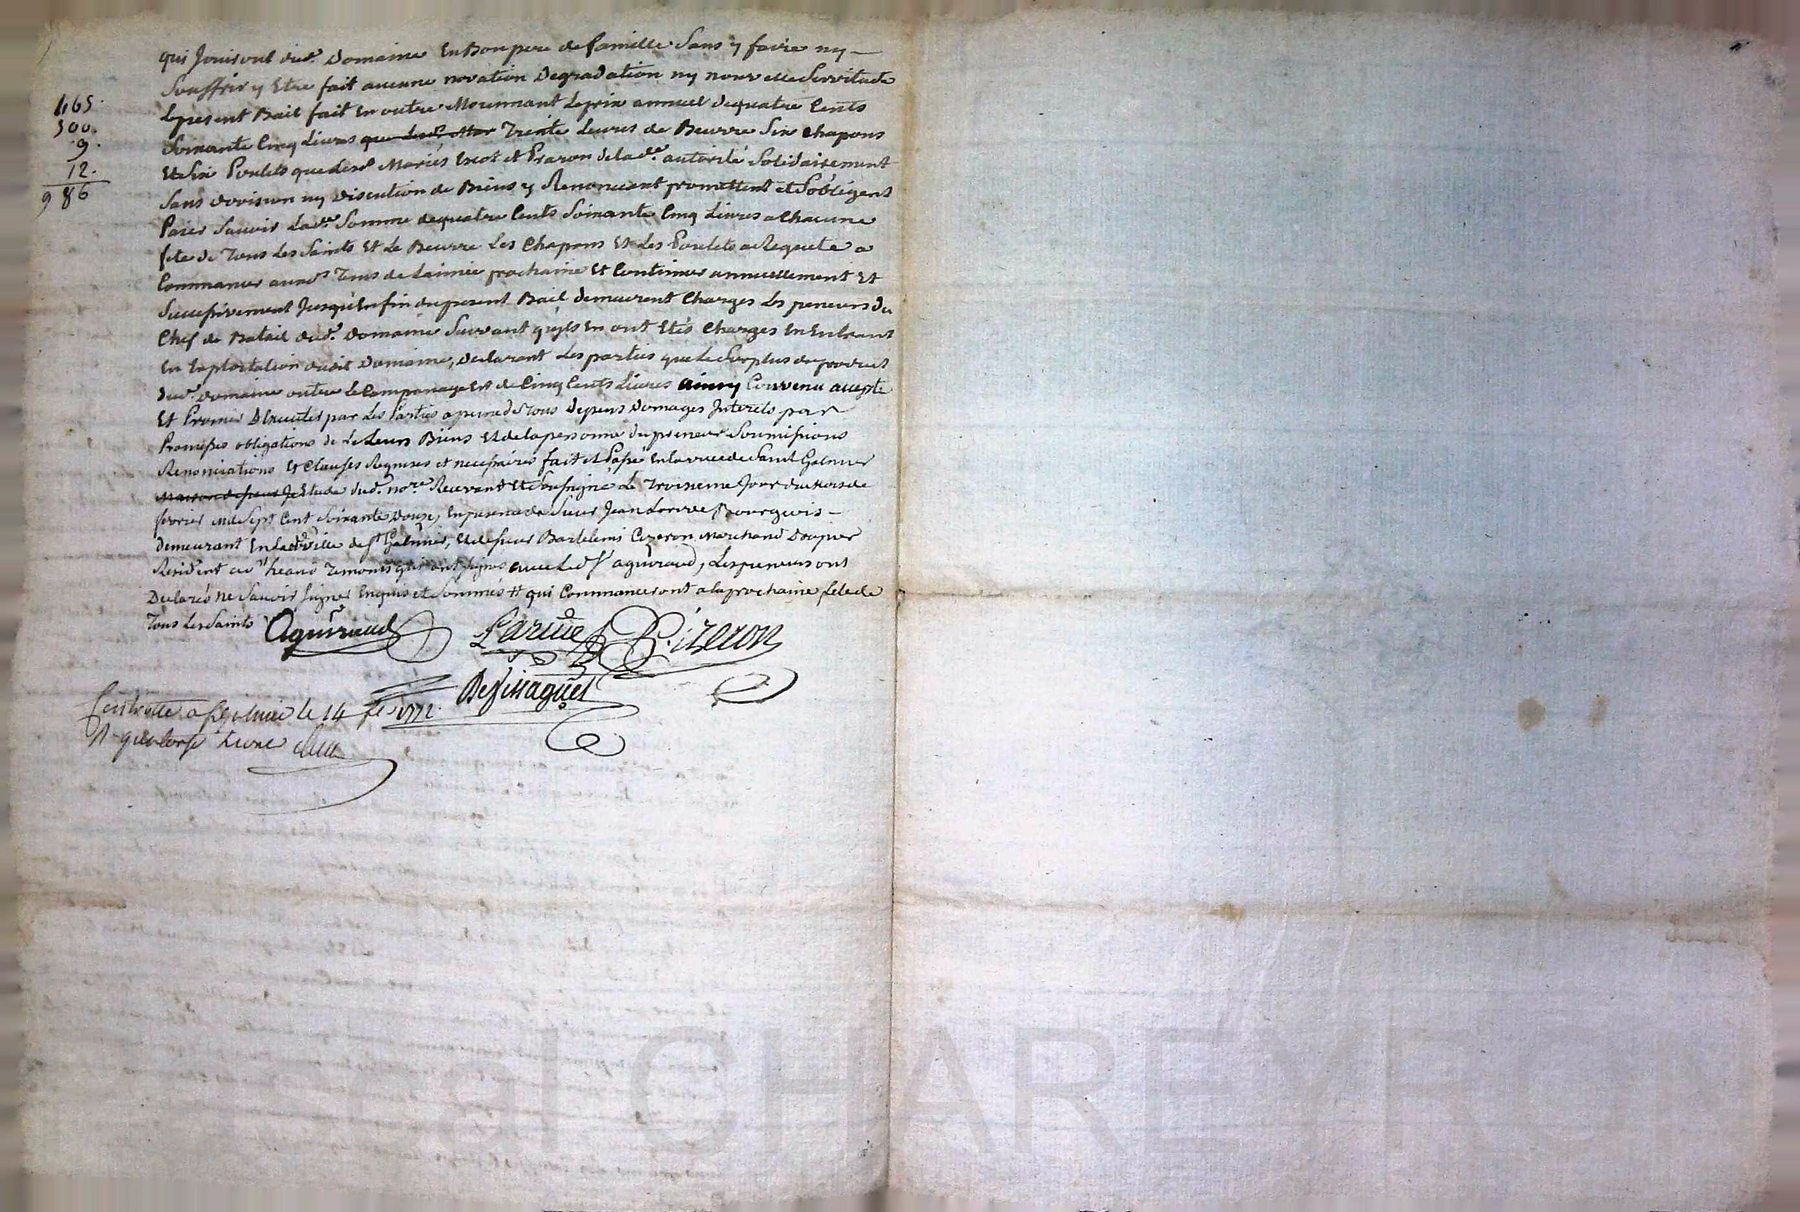 465.
500.
9.
12.
986
qui Jouiront dud. Domaine En Bon pere de famille Sans y faire ny –
Souffrir y Etre fait aucune novation Degradation ny nouvelle Servitude
Le present Bail fait En outre Moiennant Le prix annuel de quatre Cents
Soixante Cinq Livres que Trente Livres de Beurre Six Chapons
Et Six Poulets que lesd. Mariés Escot et Prazon de lad.e autorité Solidairement
Sans division ny discution de Biens y Renoncant promettent et Sobligent
Paier Sauoir Lad.e Somme de quatre Cents Soixante Cinq Livres a Chacune
fete de Tous Les Saints Et Le Beurre Les Chapons Et Les Poulets a Requete a
Commancer auxd. Tems de Lannée prochaine Et Continuer annuellement Et
Successivement Jusqu'En fin du present Bail demeurent Charges Les preneurs du
Chef de Betail dud. Domaine Suivant quyls En ont Etés Charges En Entrant
En Exploitation dudit Domaine, declarant Les parties que Le Surplus du produit
dud. Domaine outre Le Companage Est de Cinq Cents Livres ainsy Convenu accepté
Et Promis Executer par Les Parties a peine de tous Depens Domages Interets par
Promesses obligations de Leurs Biens Et de la personne du preneur Soumissions
Renonciations Et Clauses Requises et necessaires fait Et Passé En la ville de Saint Galmier
Etude dud. no.re Recevant Et Soussigné Le Troisieme Jour du Mois de
fevrier mil Sept Cent Soixante Douze, En presence de Sieur Jean Larive Bourgeois –
demeurant En lad. ville de St Galmier, Et de Sieur Bartelemi Cizeron Marchand Drapier
Resident aud. St heand Temoins qui ont Signés avec Led. Sr aguiraud, Les preneurs ont
Declarés ne Savoir Signer Enquis et Sommés # qui Commanceront a la prochaine fete de
Tous Les Saints
Aguiraud Larive Cizeron
Desissagues
Controllé a St Galmier le 14 fe. 1772.
R. quatorze livres